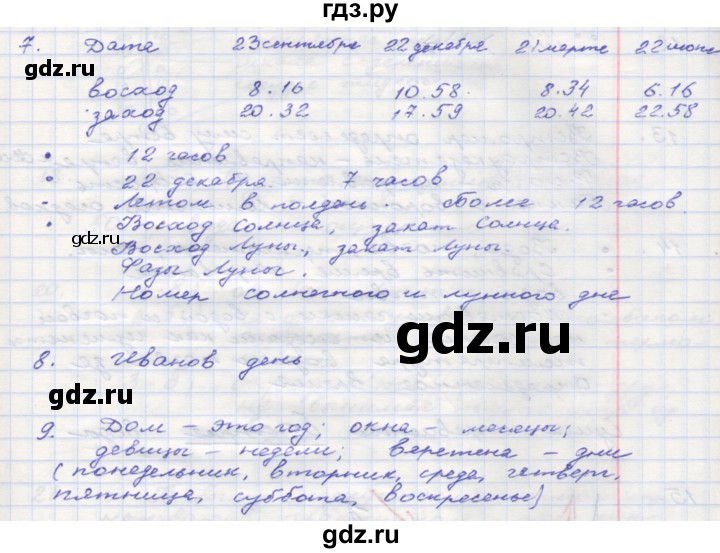 гдз.ру
7. Дата 23 сентября 22 декабря 21 марта 22 июня
восход 8.16 10.58. 8.34 6.16
заход 20.32 17.59 20.42 22.58
gdz.ru
• 12 часов
• 22 декабря. 7 часов
- Летом в полдень. более 12 часов.
• Восход Солнца, закат Солнца.
gdz.ru
Восход Луны, закат Луны.
Фазы Луны.
Номер солнечного и лунного дне
gdz.ru
8. Иванов день
gdz.ru
9. Дом – это год; окна – месяцы;
девицы – недели; веретена – дни
(понедельник, вторник, среда, четверг,
gdz.ru
пятница, суббота, воскресенье)
gdz.ru
gdz.ru